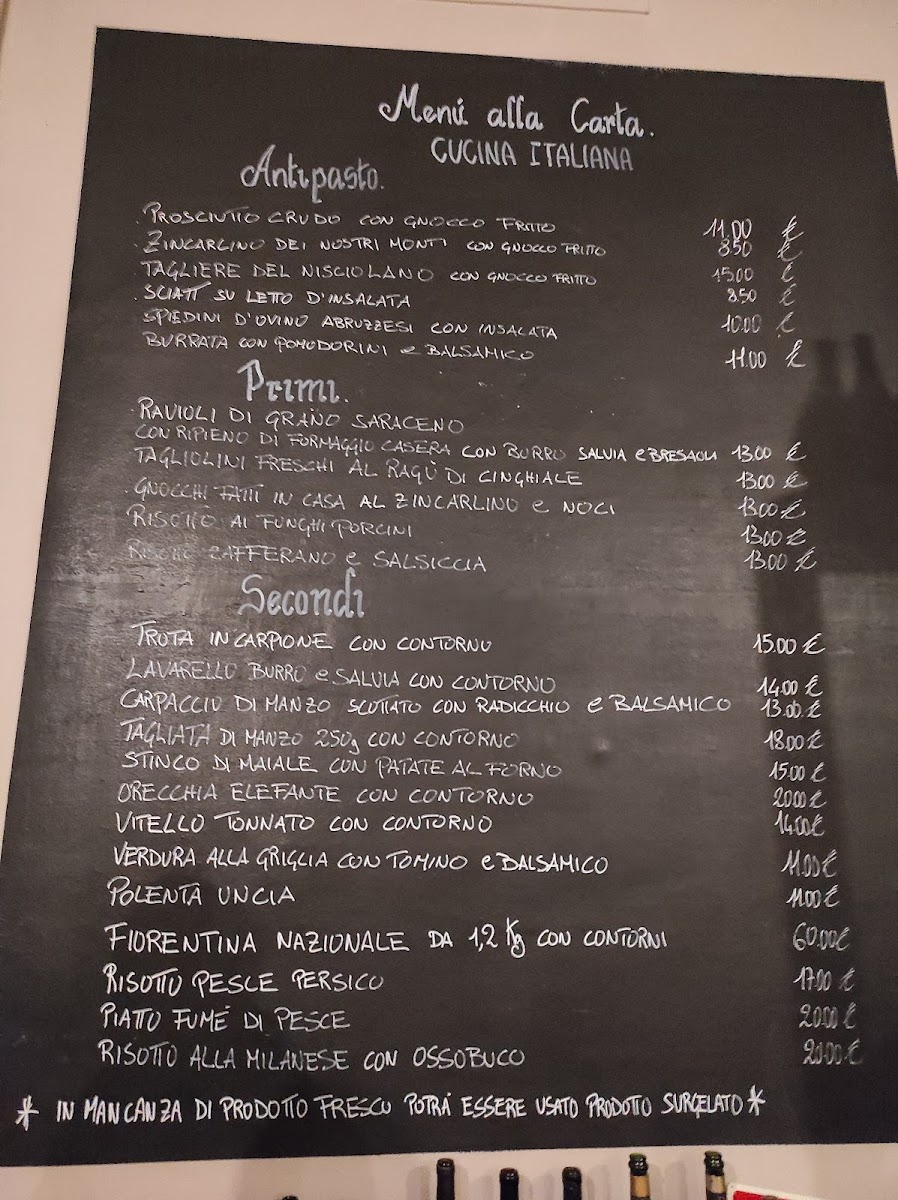 Menú alla Carta.
CUCINA ITALIANA
Antipasto.
. PROSCIUTTO CRUDO CON GNOCCO FRITTO 11.00 €
. ZINCARLINO DEI NOSTRI MONTI CON GNOCCO FRITTO 8.50 €
. TAGLIERE DEL NISCIOLANO CON GNOCCO FRITTO 15.00 €
. SCIATT SU LETTO D'INSALATA 8.50 €
SPIEDINI D'OVINO ABRUZZESI CON INSALATA 10.00 €
BURRATA CON POMODORINI e BALSAMICO 11.00 €
Primi.
. RAVIOLI DI GRANO SARACENO
CON RIPIENO DI FORMAGGIO CASERA CON BURRO SALVIA e BRESAOLA 13.00 €
TAGLIOLINI FRESCHI AL RAGÙ DI CINGHIALE 13.00 €
. GNOCCHI FATTI IN CASA AL ZINCARLINO e NOCI 13.00 €
RISOTTO AI FUNGHI PORCINI 13.00 €
RISOTTO ZAFFERANO e SALSICCIA 13.00 €
Secondi
TROTA IN CARPIONE CON CONTORNO 15.00 €
LAVARELLO BURRO e SALVIA CON CONTORNO 14.00 €
CARPACCIO DI MANZO SCOTTATO CON RADICCHIO e BALSAMICO 13.00 €
TAGLIATA DI MANZO 250g CON CONTORNO 18.00 €
STINCO DI MAIALE CON PATATE AL FORNO 15.00 €
ORECCHIA ELEFANTE CON CONTORNO 20.00 €
VITELLO TONNATO CON CONTORNO 14.00 €
VERDURA ALLA GRIGLIA CON TOMINO e BALSAMICO 11.00 €
POLENTA UNCIA 11.00 €
FIORENTINA NAZIONALE DA 1,2 Kg CON CONTORNI 60.00 €
RISOTTO PESCE PERSICO 17.00 €
PIATTO FUMÉ DI PESCE 20.00 €
RISOTTO ALLA MILANESE CON OSSOBUCO 20.00 €
* IN MANCANZA DI PRODOTTO FRESCO POTRÁ ESSERE USATO PRODOTTO SURGELATO *